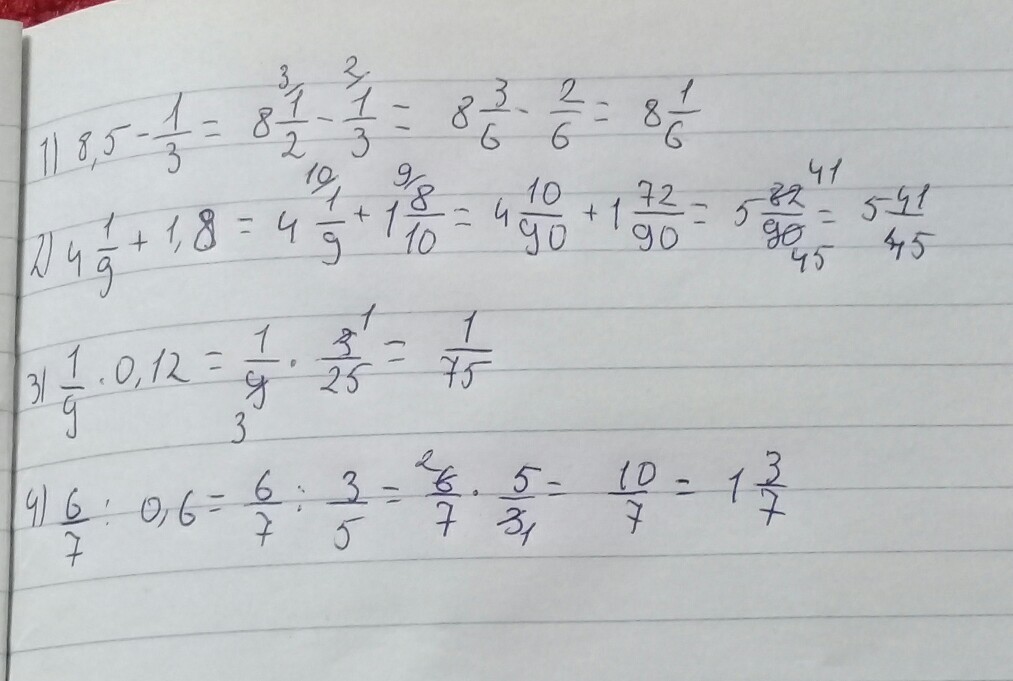 1) 8,5 - 1/3 = 8 1/2 3/ - 1/3 2/ = 8 3/6 - 2/6 = 8 1/6
2) 4 1/9 + 1,8 = 4 1/9 10/ + 1 8/10 9/ = 4 10/90 + 1 72/90 = 5 82/90 41 45 = 5 41/45
3) 1/9 · 0,12 = 1/9 3 · 3/25 1 = 1/75
4) 6/7 : 0,6 = 6/7 : 3/5 = 2 6/7 · 5/3 1 = 10/7 = 1 3/7